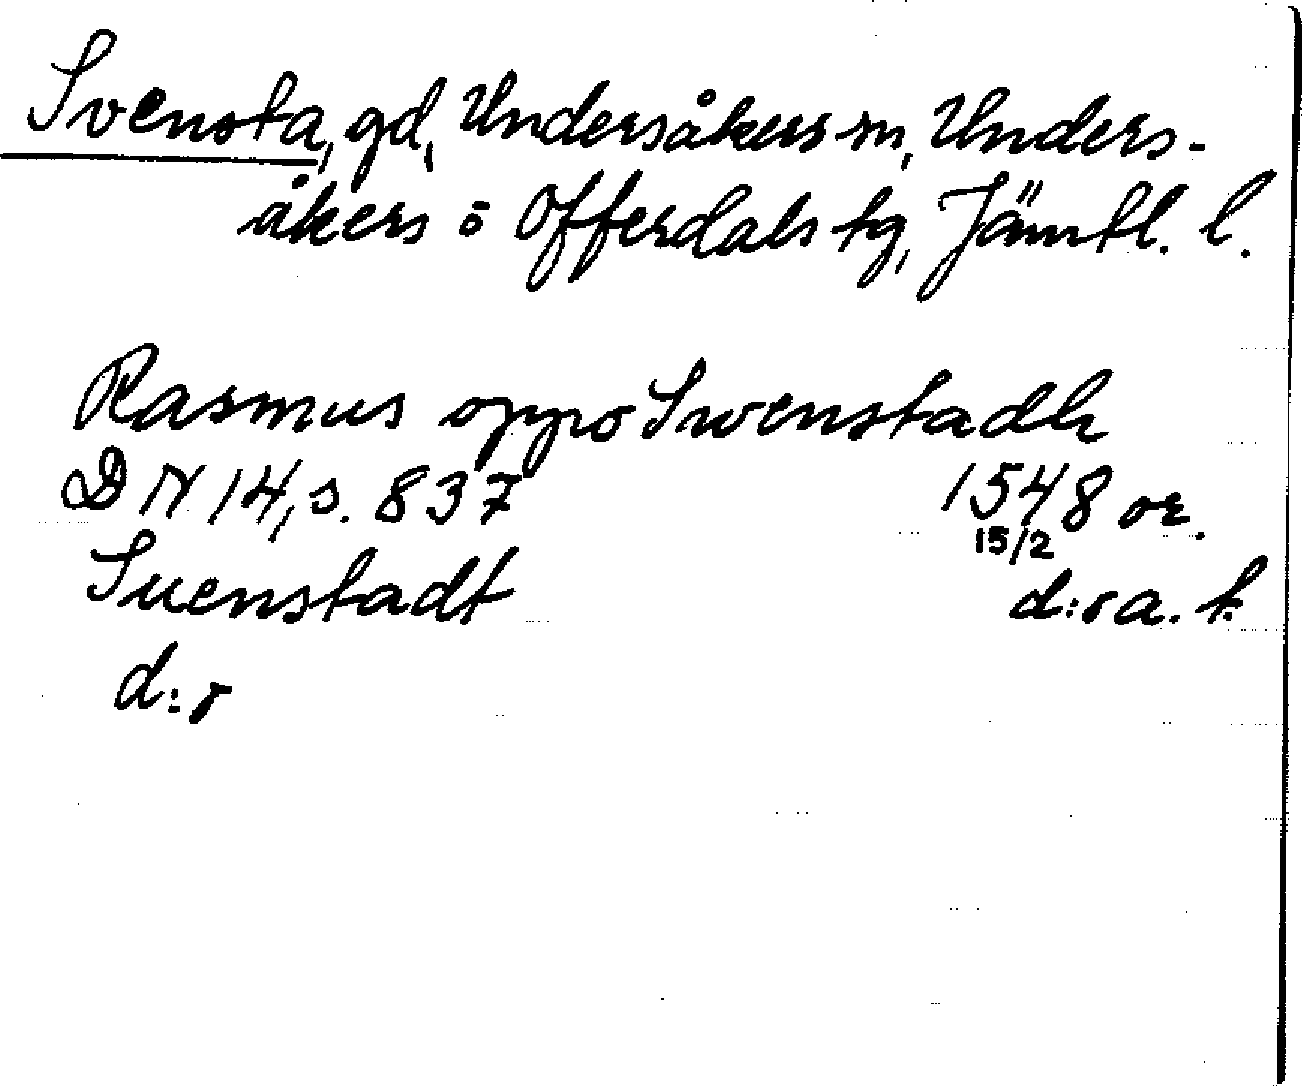 Svensta, gd, Undersåkers sn, Unders-
åkers o Offerdals tg, Jämtl. l.
Rasmus oppo Swenstadh
DN 14, s. 837 1548 or.
15/2
Suenstadt d:o a. t.
d:o